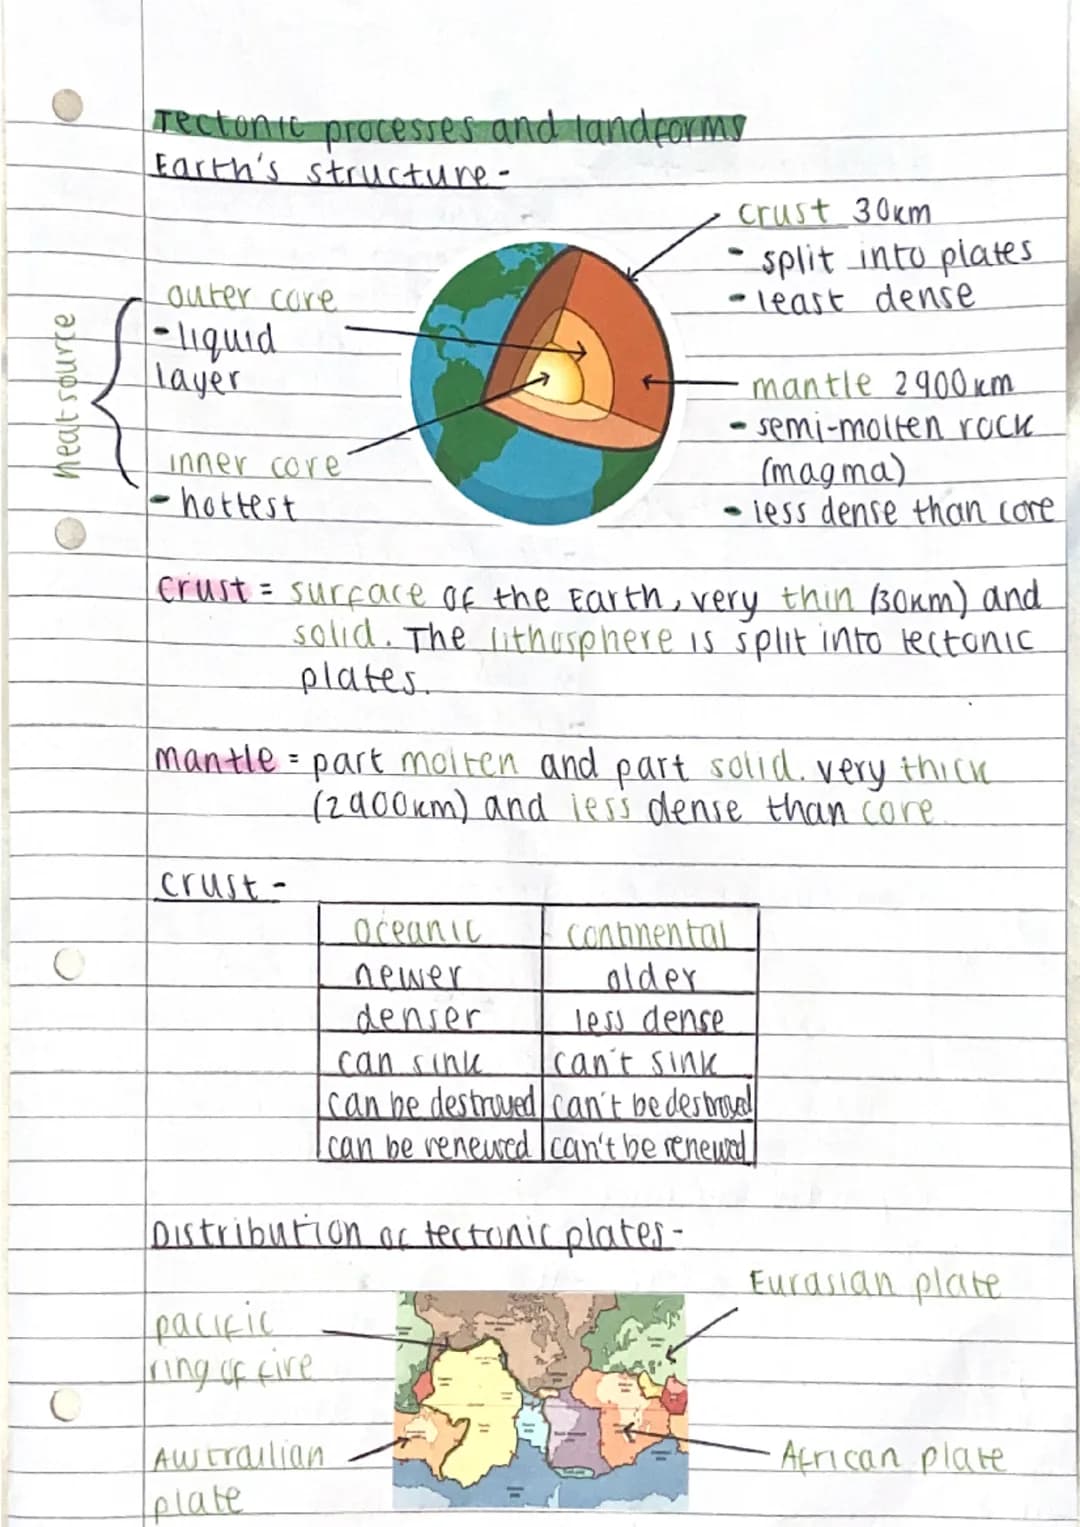 Tectonic processes and landforms
Earth's structure -
crust 30km
- split into plates
- least dense
outer core
- liquid
layer
heat source
mantle 2900km
- semi-molten rock
(magma)
- less dense than core
inner core
- hottest
crust = surface of the Earth, very thin (30km) and
solid. The lithosphere is split into tectonic
plates.
mantle = part molten and part solid. very thick
(2900km) and less dense than core.
crust -
oceanic continental
newer older
denser less dense
can sink can't sink
can be destroyed can't be destroyed
can be renewed can't be renewed
Distribution of tectonic plates -
Eurasian plate
pacific
ring of fire
Austrailian
plate
African plate